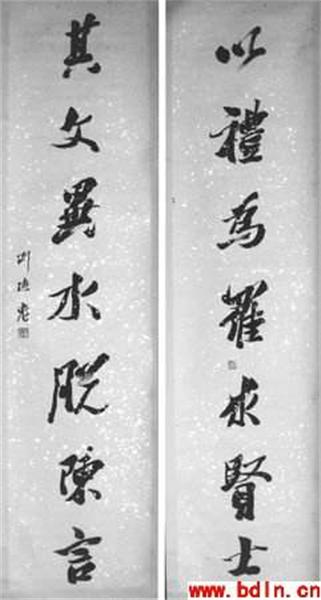 以禮為羅求賢士
其文異水脫陳言
www.bdln.cn